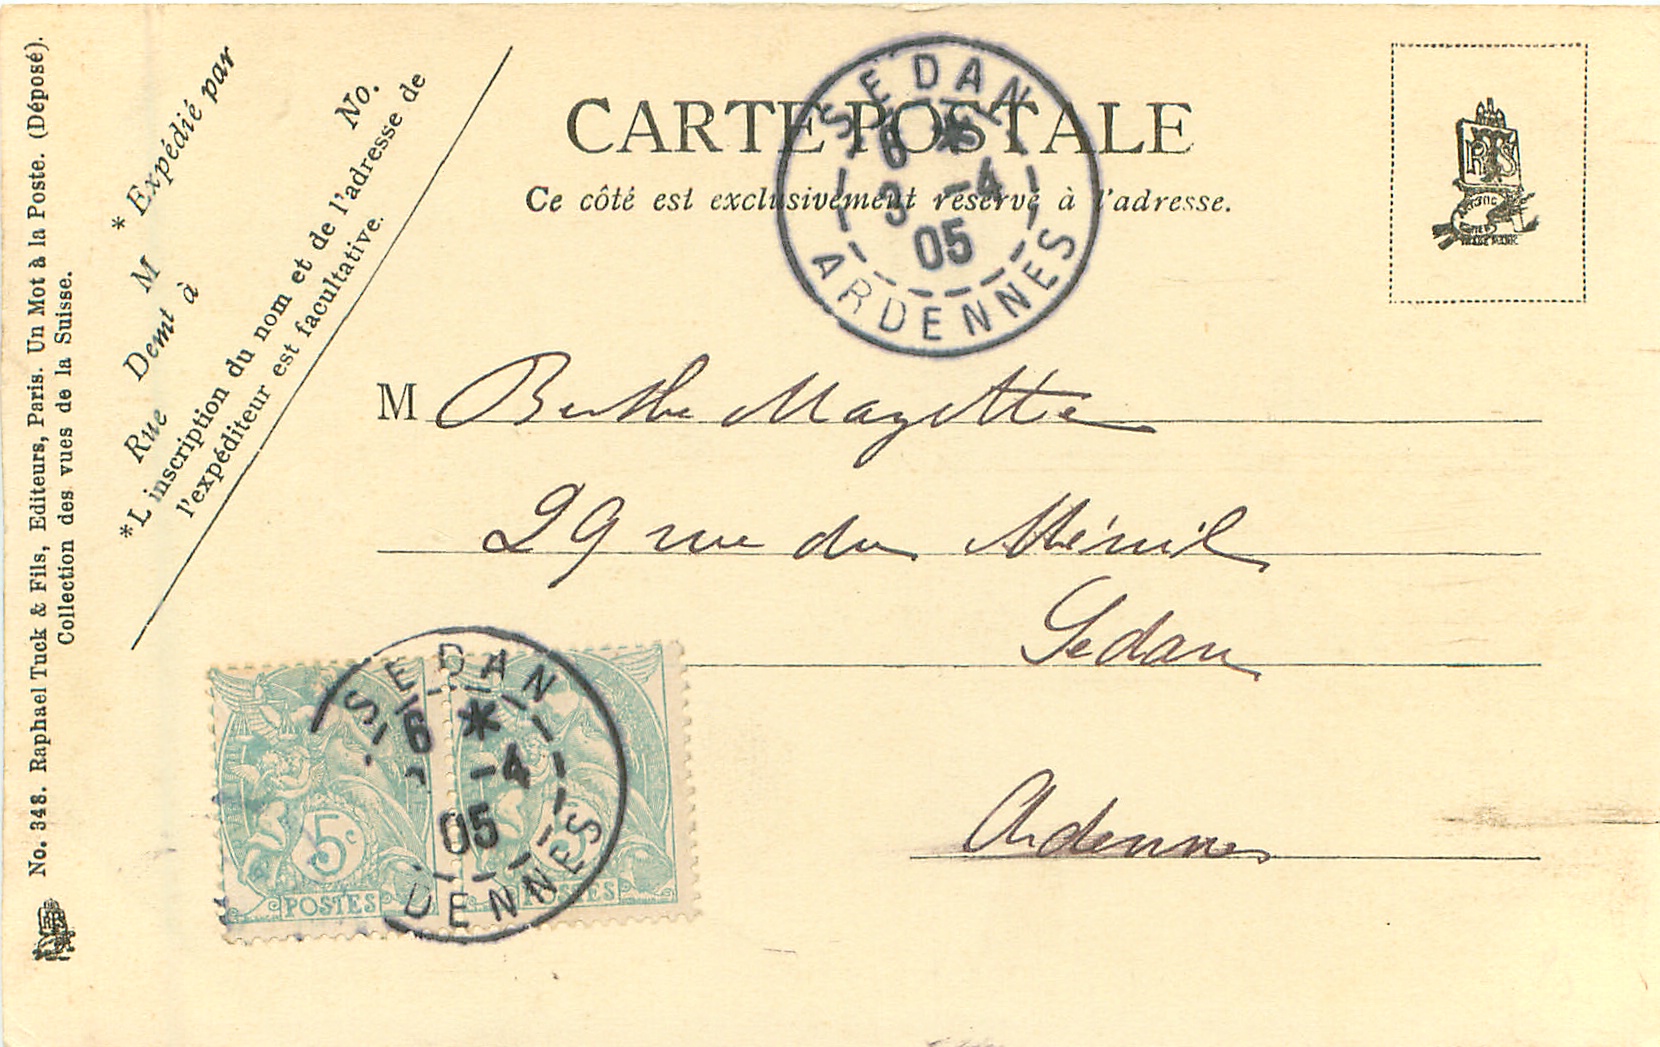 No. 348. Raphael Tuck & Fils, Editeurs, Paris. Un Mot à la Poste. (Déposé).
Collection des vues de la Suisse.
* Expédié par
M
No.
Rue
Demt à
*L inscription du nom et de l'adresse de
l'expéditeur est facultative.
CARTE POSTALE
Ce côté est exclusivement réservé à l'adresse.
SEDAN
6 *
3 -4
05
ARDENNES
RTS
M Berthe Mazette
29 rue du Ménil
Sedan
Ardennes
SEDAN
6 *
-4
05
DENNES
5c
POSTES
5
POSTES